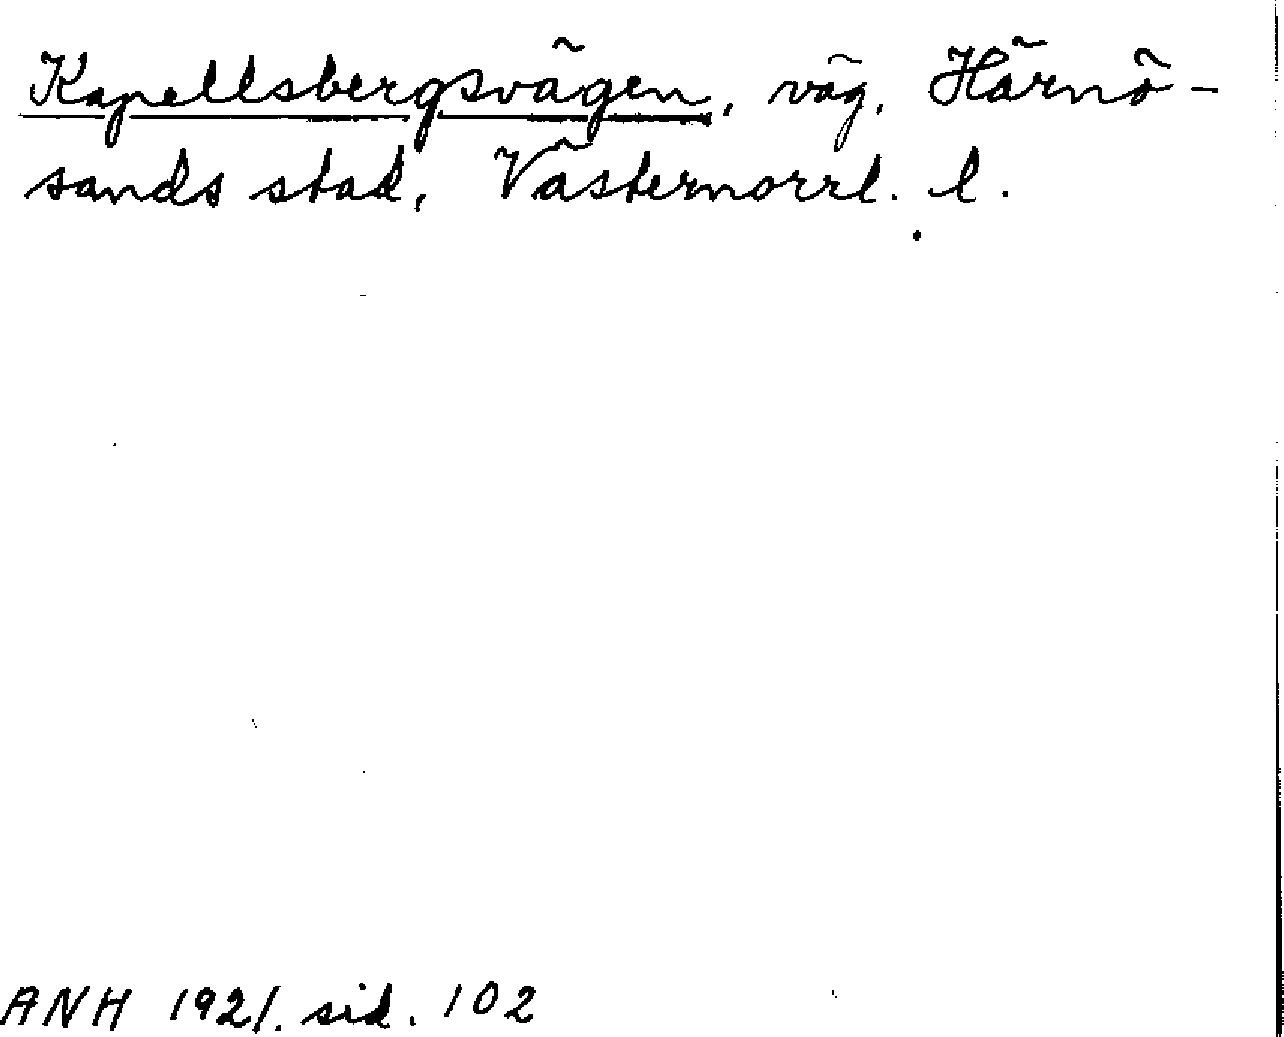 Kapellsbergsvägen, väg, Härnö-
sands stad, Västernorrl. l.
ANH 1921. sid. 102